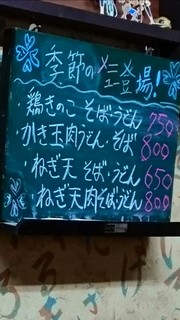 季節のメニュー登場!
・鶏きのこ そば・うどん 750
・かき玉肉うどん・そば 800
・ねぎ天 そば・うどん 650
・ねぎ天肉そば・うどん 800